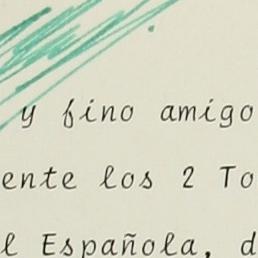 y fino amigo
ente los 2 To
l Española, d